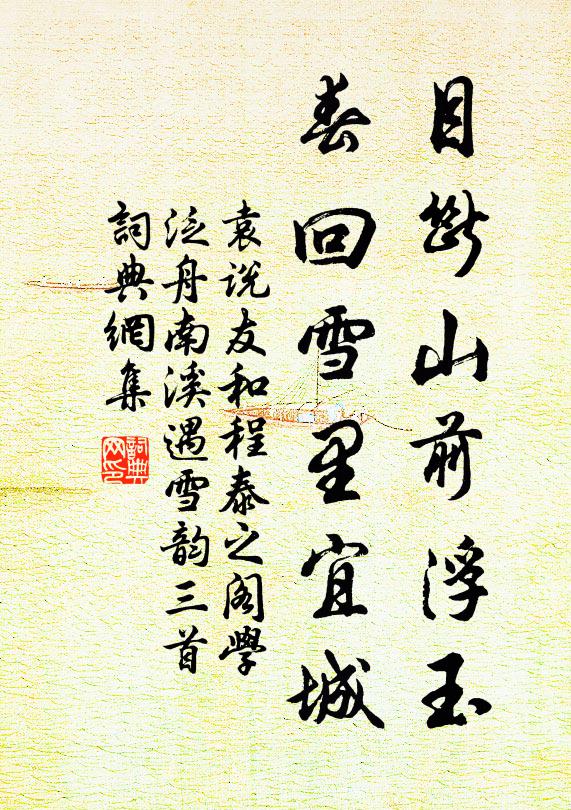 目断山前浮玉
春回雪里宜城
袁说友和程泰之阁學
泛舟南溪遇雪韵三首
詞典網集
詞典
网印